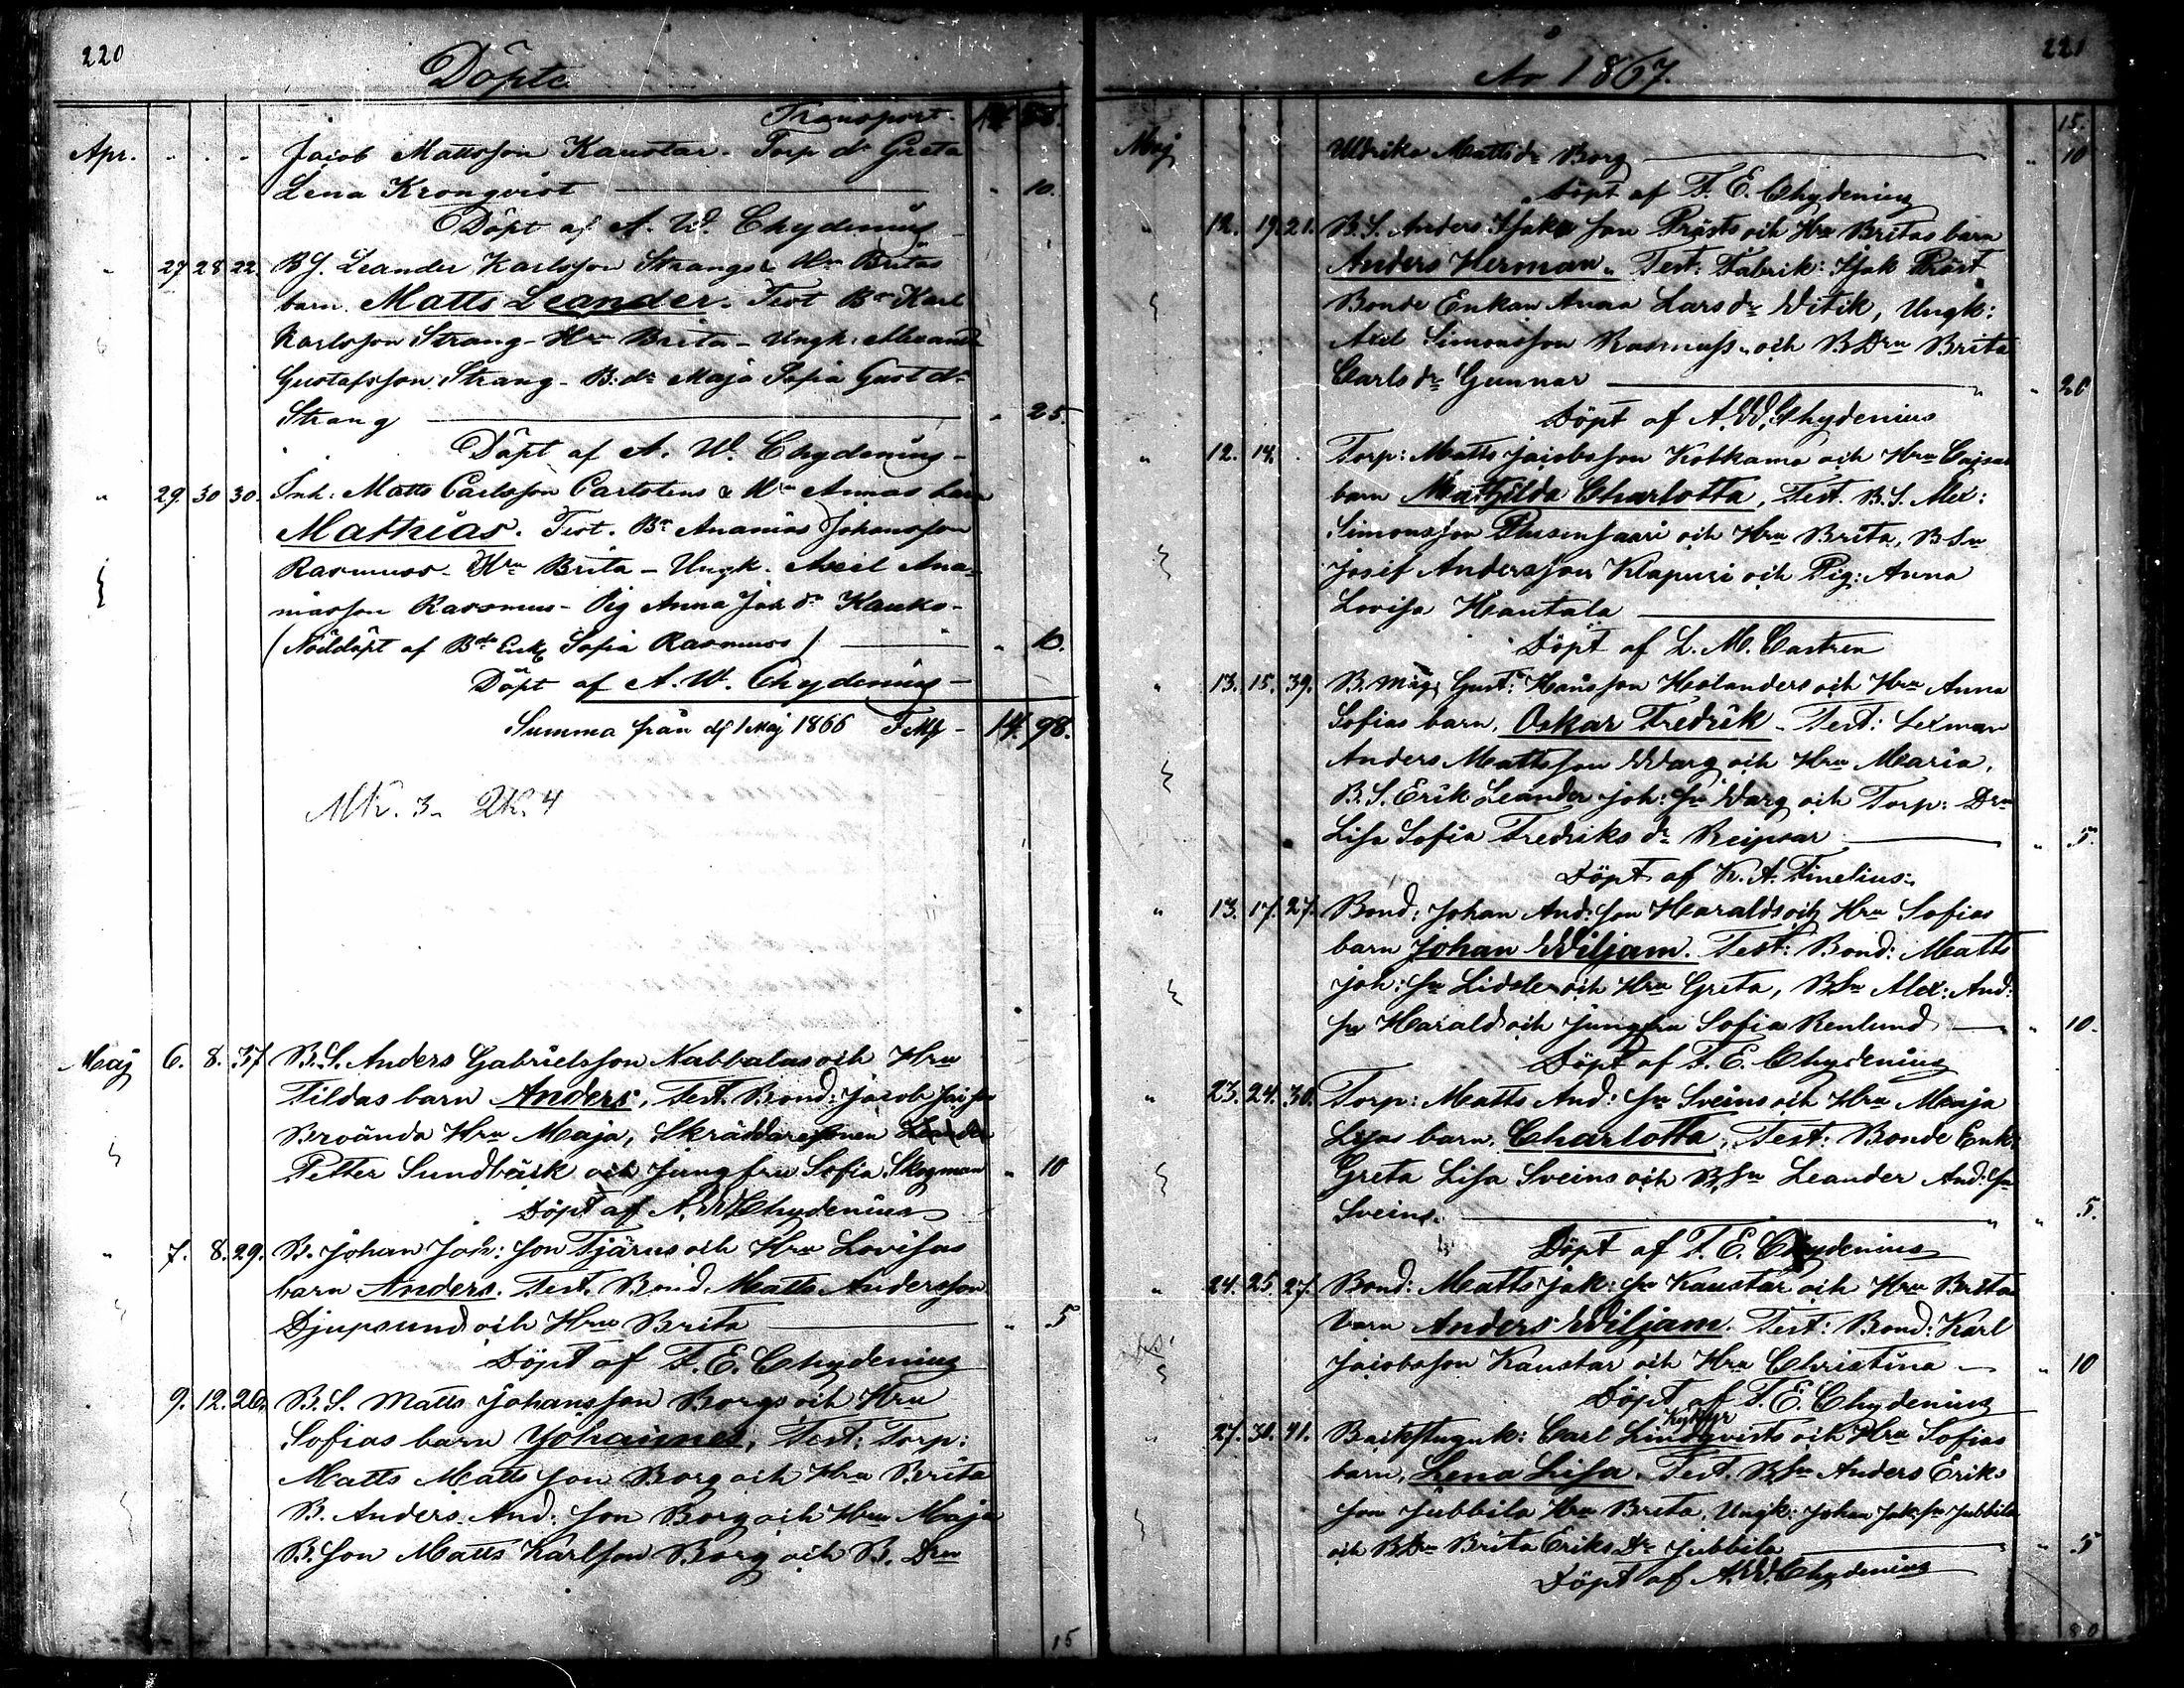 220
Döpte
Transport
Apr. Jacob Mattsson Kaustar. Torp dr Greta
Lena Kronqvist " 10.
Döpt af A. W. Chydenius
" 27 28 22. BS. Leander Karlsson Strangs & Hu Britas
barn Matts Leander. Test Br Karl
Karlsson Strang - Hu Brita - Ungk. Alexand
Gustafsson Strang - B. dr Maja Sofia Gust dr
Strang " 25.
Döpt af A. W. Chydenius -
" 29. 30 30. Inh: Matts Carlsson Carlstens & Hu Annas barn
Mathias. Test. Br Ananias Johansson
Rasmuss - Hu Brita - Ungk. Axel Ana-
niasson Rasmus - Pig Anna Jak dr Kauko -
(Nöddöpt af Bde Enk Sofia Rasmuss) " 10.
Döpt af A. W. Chydenius -
Summa från d 1 Maj 1866 FMk - 14. 98.
Mk. 3. Qk. 4
Maj 6. 8. 37 B.S. Anders Gabrielsson Nabbalas och Hru
Tildas barn Anders, Test. Bond: Jacob Jacson
Hru Maja, Skräddaresonen
Petter Sundbäck och Jungfru Sofia Skogman " 10
Döpt af A. W. Chydenius
" 7. 8. 29. B. Johan Joh: son Tjärus och Hru Lovisas
barn Anders. Test. Bond. Matts Andersson
Djupsund och Hru Brita " 5
Döpt af F. E. Chydenius
9. 12. 26. B. S. Matts Johansson Borgs och Hru
Sofias barn Johannes, Test: Torp:
Matts Matts son Borg och Hru Brita
B. Anders And: son Borg och Hru Maja
B. son Matts Karlson Borg och B. Dru
15
År 1867.
221
15.
Maj Uldrika Matts dr Borg " 10
Döpt af F. E. Chydenius
" 12. 19. 21. B.S. Anders Isaks son Prästs och Hru Britas barn
Anders Herman. Test: Fabrik: Isak Präst
Bonde Enkan Anna Lars dr Witik, Ungk:
Axel Simonsson Rasmuss och B Dru Brita
Carls dr Gunnar " 20
Döpt af A. W. Chydenius
" 12. 14. Torp: Matts Jacobsson Kotkamo och Hru Cajsas
barn Mathilda Charlotta, Test. B. S. Alex:
Simonsson Plusensaari och Hru Brita, B Su
Josef Andersson Klapuri och Pig: Anna
Lovisa Hautala
Döpt af L. M. Castren
" 13. 15. 39. B. Måg Gust: Hansson Holanders och Hru Anna
Sofias barn, Oskar Fredrik. Test: Lexman
Anders Mattsson Warg och Hru Maria,
B. S. Erik Leander Joh: Su Warg och Torp: Dru
Lisa Sofia Fredriks dr Reipsar " 5.
Döpt af K. A. Finelius.
" 13. 17. 27. Bond: Johan And: son Haralds och Hru Sofias
barn Johan Wiljam. Test: Bond: Matts
Joh: Su Lidste och Hru Greta, B Su Alex: And:
su Harald och Jungfru Sofia Renlund " 10.
Döpt af F. E. Chydenius
" 23. 24. 30. Torp: Matts And: Su Sveins och Hru Maja
Lisas barn, Charlotta, Test: Bonde Enk:
Greta Lisa Sveins och B. Su Leander And: Su
Sveins. " 5.
Döpt af F. E. Chydenius
" 24. 25. 27. Bond: Matts Jak: Su Kaustar och Hru Britas
barn Anders Wiljam. Test: Bond: Karl
Jacobsson Kaustar och Hru Christina " 10
Döpt af F. E. Chydenius
" 27. 31. 41. Backstuguk: Carl Lindqvists och Hru Sofias
barn, Lena Lisa. Test. B Su Anders Eriks
son Jubbila Hru Brita, Ungk: Johan Jak: Su Jubbila
och B Dru Brita Eriks Dr Jubbila " 5
Döpt af A. W. Chydenius
80